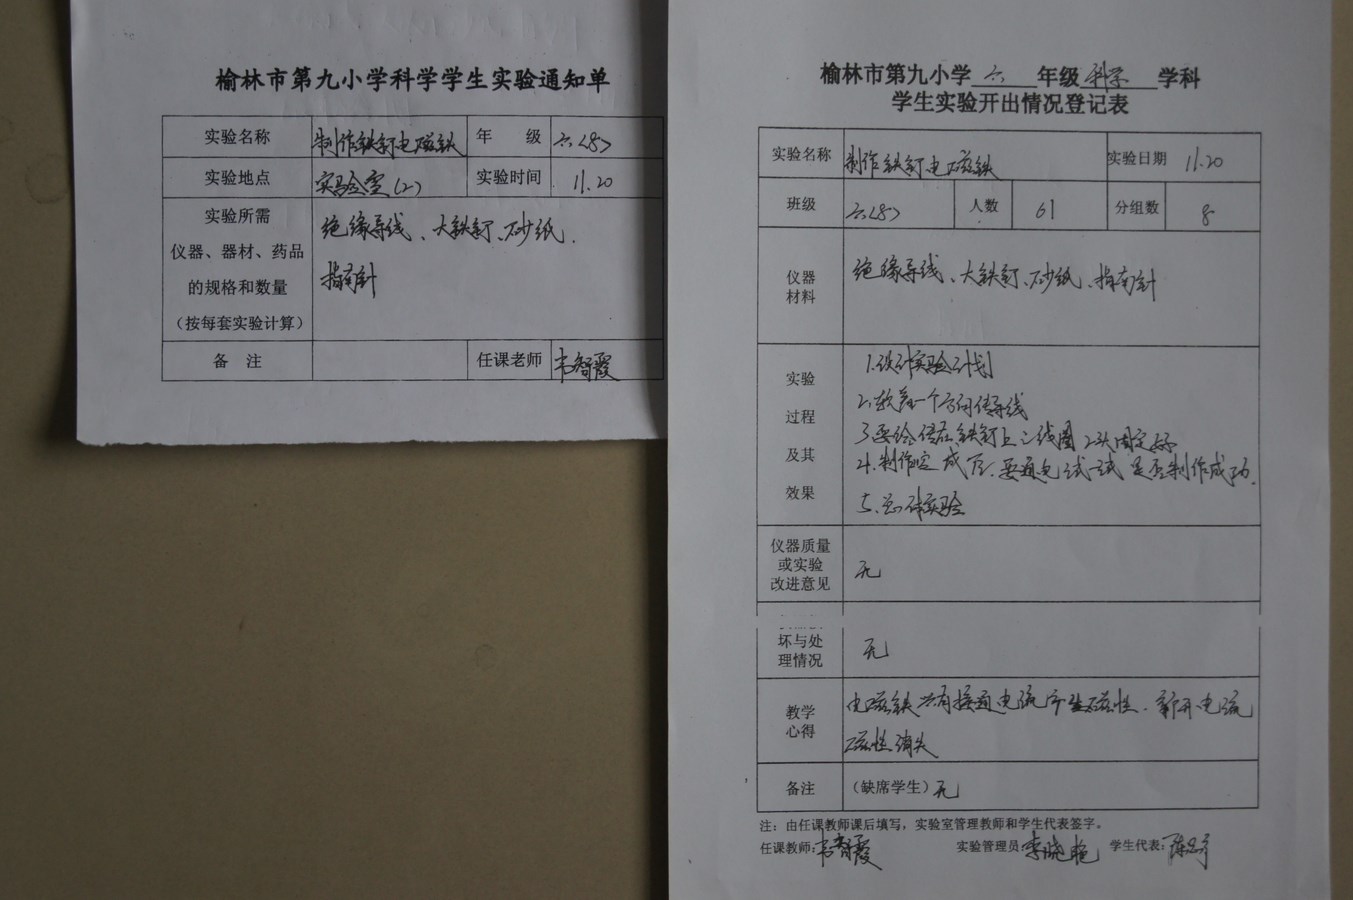 榆林市第九小学科学学生实验通知单
实验名称 制作铁钉电磁铁 年 级 六<8>
实验地点 实验室(2) 实验时间 11.20
实验所需
仪器、器材、药品
的规格和数量
（按每套实验计算）
绝缘导线、大铁钉、砂纸.
指南针
备 注 任课老师 韦智霞
榆林市第九小学 六 年级 科学 学科
学生实验开出情况登记表
实验名称 制作铁钉电磁铁 实验日期 11.20
班级 六<8> 人数 61 分组数 8
仪器
材料
绝缘导线、大铁钉、砂纸、指南针
实验
过程
及其
效果
1.设计实验计划
2.较着一个方向绕导线
3.要给绕在铁钉上 线圈 2头固定好
4.制作完成后、要通电试一试是否制作成功.
5、总计实验
仪器质量
或实验
改进意见
无
坏与处
理情况
无
教学
心得
电磁铁只有接通电流产生磁性.断开电流
磁性消失
备注 （缺席学生）无
注：由任课教师课后填写，实验室管理教师和学生代表签字。
任课教师：韦智霞 实验管理员：李晓艳 学生代表：